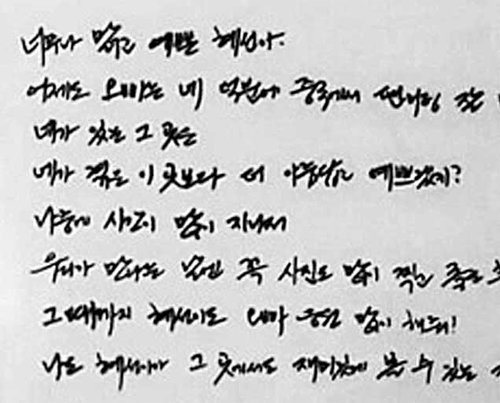 너무나 맑고 예쁜 혜선아.
어제도 오빠는 네 덕분에 중국에서 촬영 잘
네가 있는 그 곳은
네가 찍은 이 곳보다 더 아름답고 예쁘겠지?
나중에 시간이 많이 지나서
우리가 만나는 날엔 꼭 사진도 많이 찍고 춤도
그때까지 혜선이도 엄마 응원 많이 해줘!
나도 혜선이가 그 곳에서도 재미있게 볼 수 있는